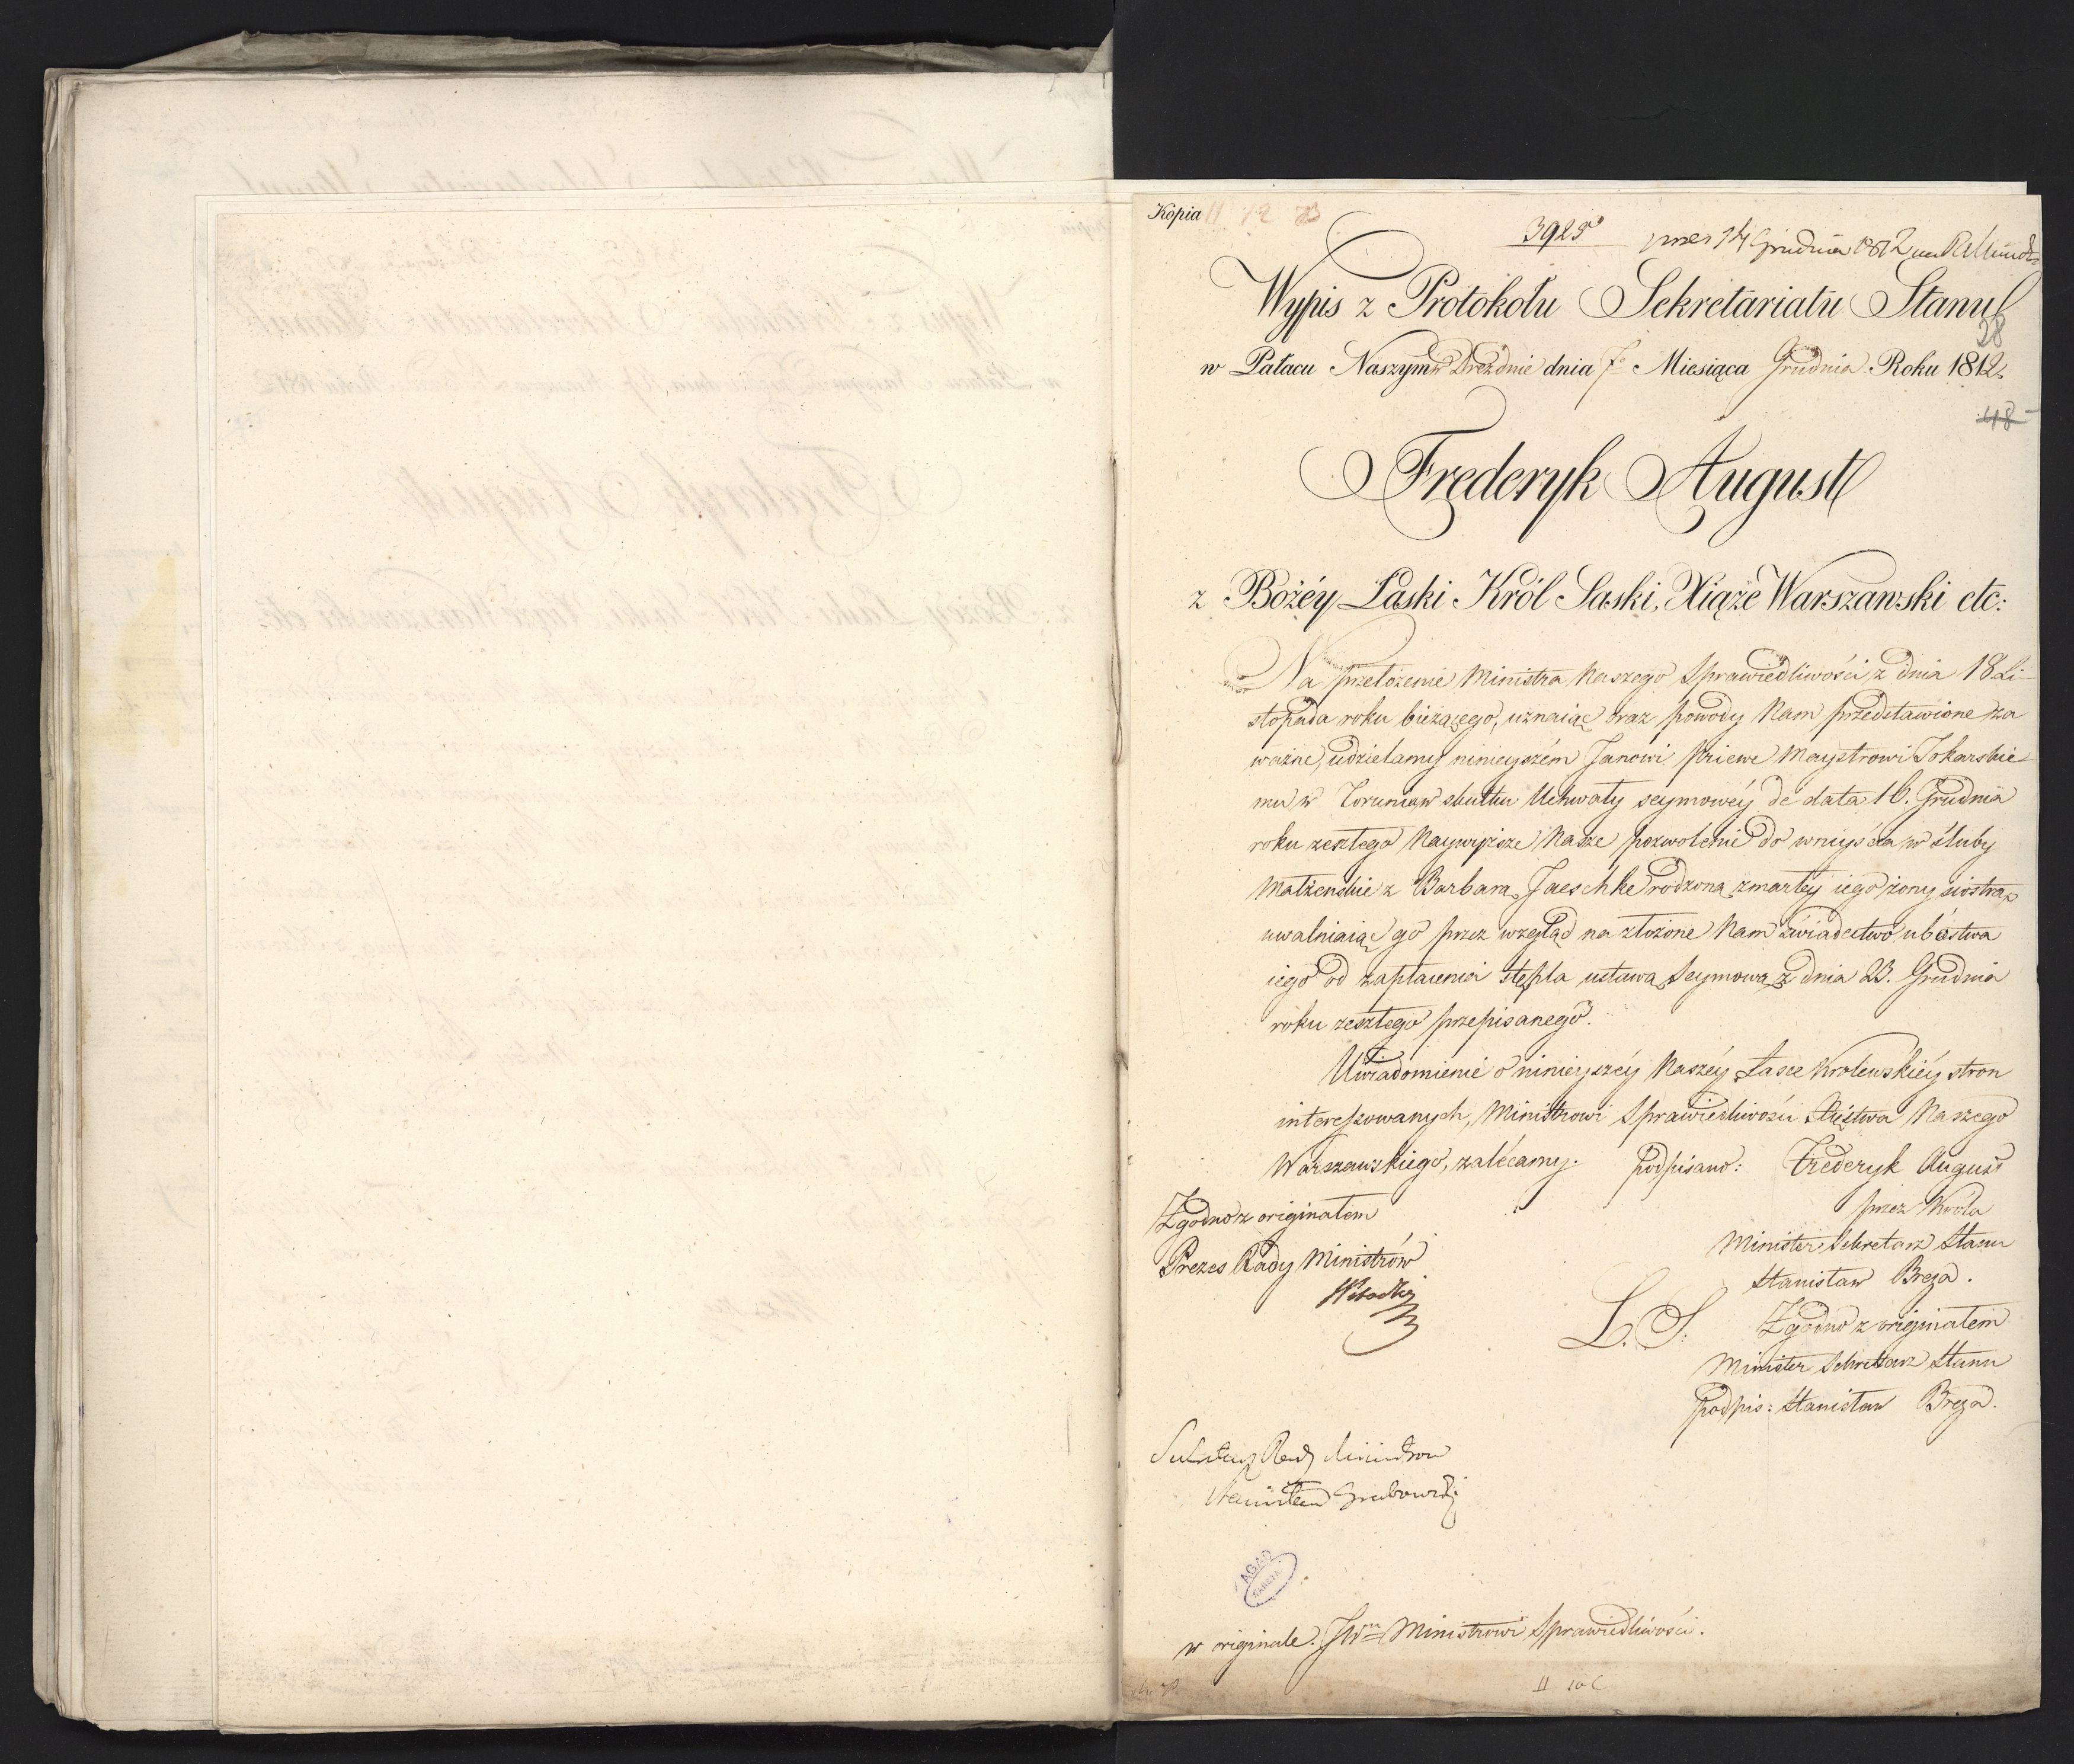 Kopia
3925
14 Grudnia 1812
Wypis z Protokołu Sekretariatu Stanu
38
w Pałacu Naszym w Dreźdnie dnia 7º Miesiąca Grudnia Roku 1812.
48
Frederyk August
z Bożéy Łaski Król Saski, Xiąże Warszawski etc:
Na przełożenie Ministra Naszego Sprawiedliwości z dnia 18 Li-
stopada roku bieżącego, uznaiąc oraz powody Nam przedstawione za
ważne, udzielamy ninieyszém Janowi Priewe Maystrowi Tokarskie-
mu w Toruniu w skutku Uchwały seymowéy de data 16. Grudnia
roku zeszłego Naywyższe Nasze pozwolenie do wniyścia w śluby
Małżeńskie z Barbarą Jaeschke rodzoną zmarłey iego żony siostrą,
uwalniaiąc go przez wzgląd na złożone Nam świadectwo ubóstwa
iego od zapłacenia stępla ustawą Seymową z dnia 23. Grudnia
roku zeszłego przepisanego.
Uwiadomienie o ninieyszéy Naszéy Łasce Krolewskiéy stron
interessowanych, Ministrowi Sprawiedliwości Xięstwa Naszego
Warszawskiego, zalécamy. podpisano: Frederyk August
przez Króla
Minister Sekretarz Stanu
Stanisław Breza.
Zgodno z originałem
Prezes Rady Ministrów
L. S. Zgodno z originałem
Minister Sekretarz Stanu
podpis: Stanisław Breza.
Sekretarz Rady Ministrow
Stanisław Grabowski
AGAD
w originale: JWmu Ministrowi Sprawiedliwości.